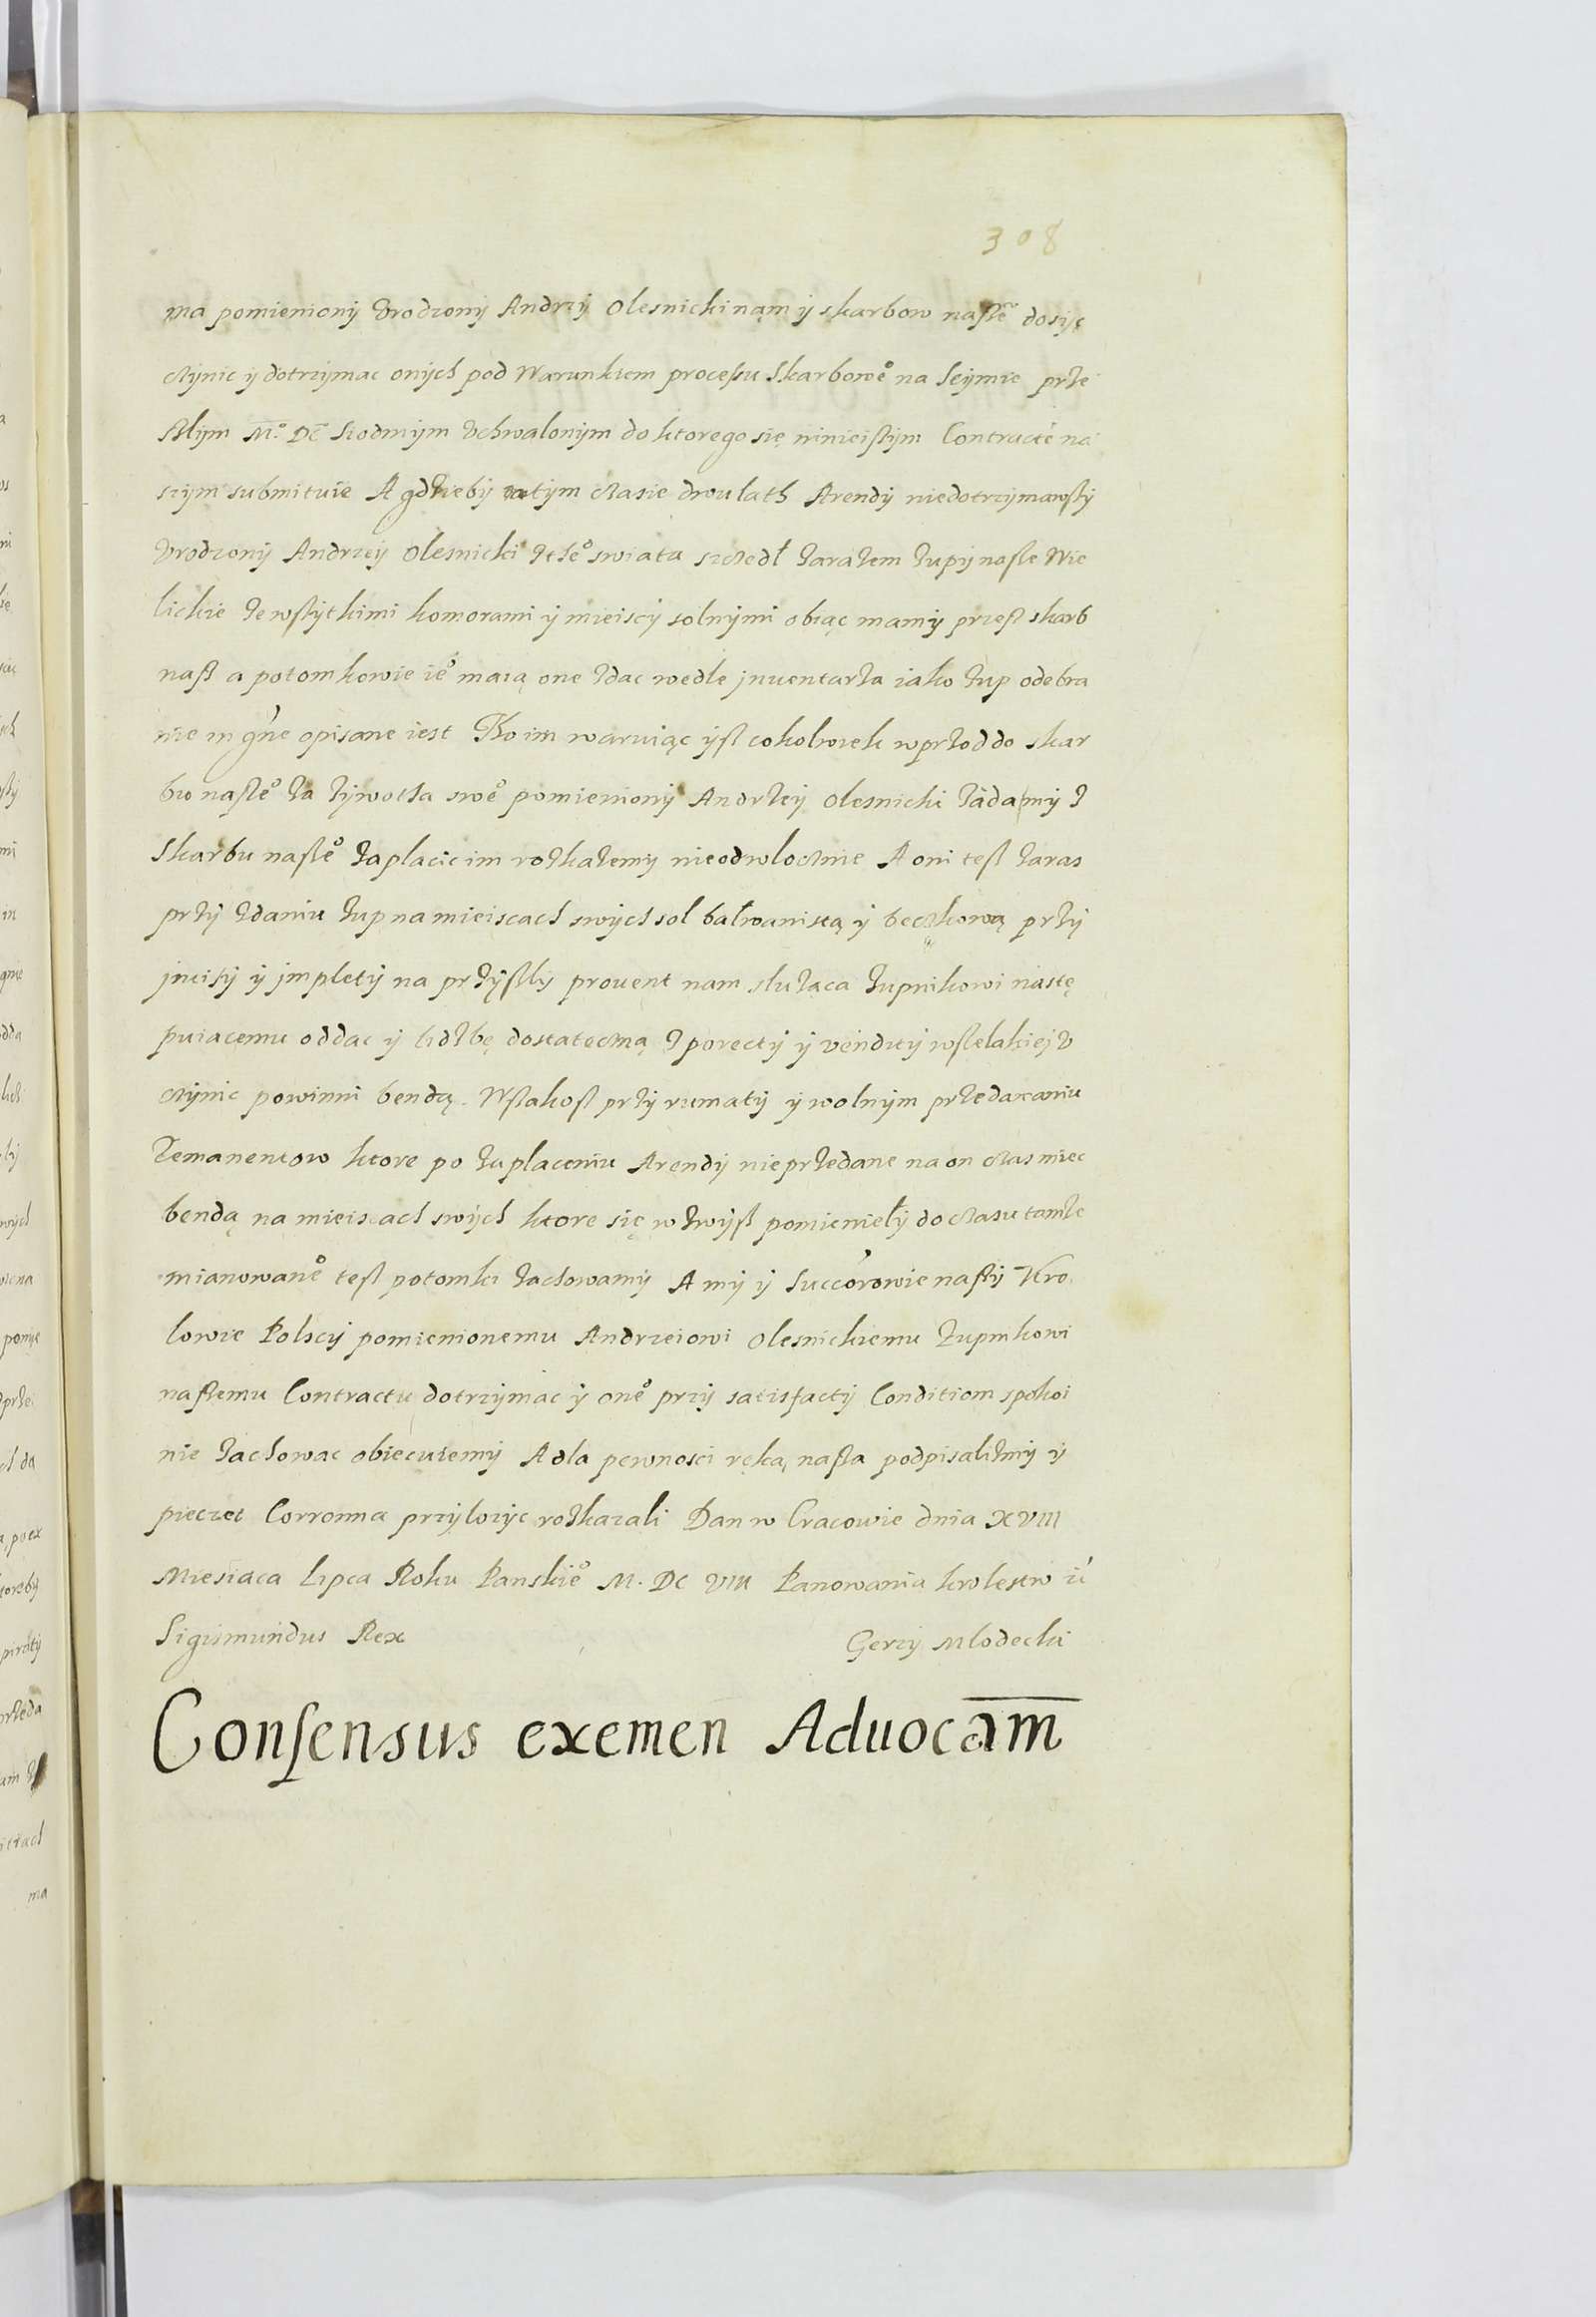 308
ma pomieniony Vrodzony Andrzy Olesnicki nam y skarbow naszeº dosyc
czynic y dotrzymac onych pod Warunkiem processu Skarboweº na Seymie prze
szlym Mº DC Siodmym Vchwalonym do ktorego się ninieiszym Contracte na
szym submituie A gdzieby w tym czasie dwu lath Arendy niedotrzymawszy
Vrodzony Andrzey Olesnicki z teº swiata szczedł zarazem zupy nasze Wie
lickie ze wszytkimi komorami y mieiscy solnymi obiąc mamy przesz skarb
nasz a potomkowie ieº maią one zdac wedle jnuentarza iako zup odebra
nie in gne opisane iest To im waruiąc ysz cokolwiek wprzod do skar
bu naszeº za zywotha sweº pomieniony Andrzey Olesnicki zada my z
Skarbu naszeº zaplacic im roskazemy nieodwlocznie A oni tesz zaras
przy zdaniu zup na mieiscach swych sol bałwanistą y beczkową przy
jncisy y jmplety na przyszly prouent nam służaca zupnikowi nastę
puiacemu oddac y liczbę dostateczną z porecty y vendity wszelakiej v
czynic powinni bendą. Wszakosz przy rumaty y wolnym przedawaniu
Remanentow ktore po zaplaceniu Arendy nieprzedane na on czas miec
bendą na mieiscach swych ktore się w zwysz pomieniely do czasu tamze
mianowaneº tesz potomki zachowamy A my y Succorowie naszy Kro
lowie Polscy pomienionemu Andrzeiowi Olesnickiemu Zupnikowi
naszemu Contractu dotrzymac y oneº przy satisfacty Condition spokoi
nie zachowac obiecuiemy A dla pewnosci ręką naszą podpisalismy y
pieczec Corronna przylozyc roskazali Dan w Cracowie dnia XVIII
Miesiaca Lipca Roku Panskieº M. DC VIII Panowania krolestw
Sigismundus Rex Gerzy Mlodecki
Consensus exemen Aduocam